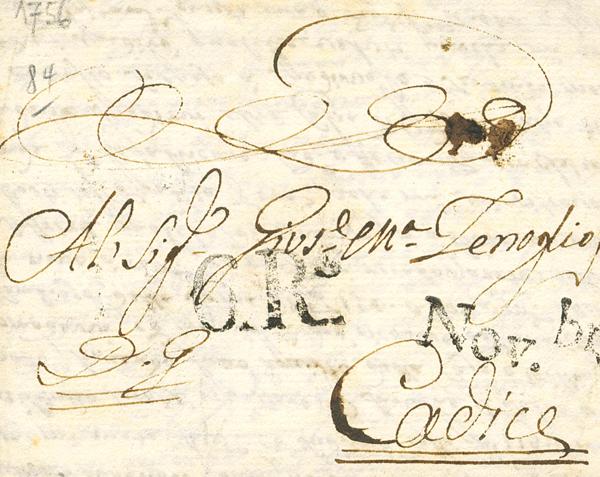 1756
84
Al Sigr Giuse Ma Zenoglio
6.Rs
Nov. be
D. G
Cadice